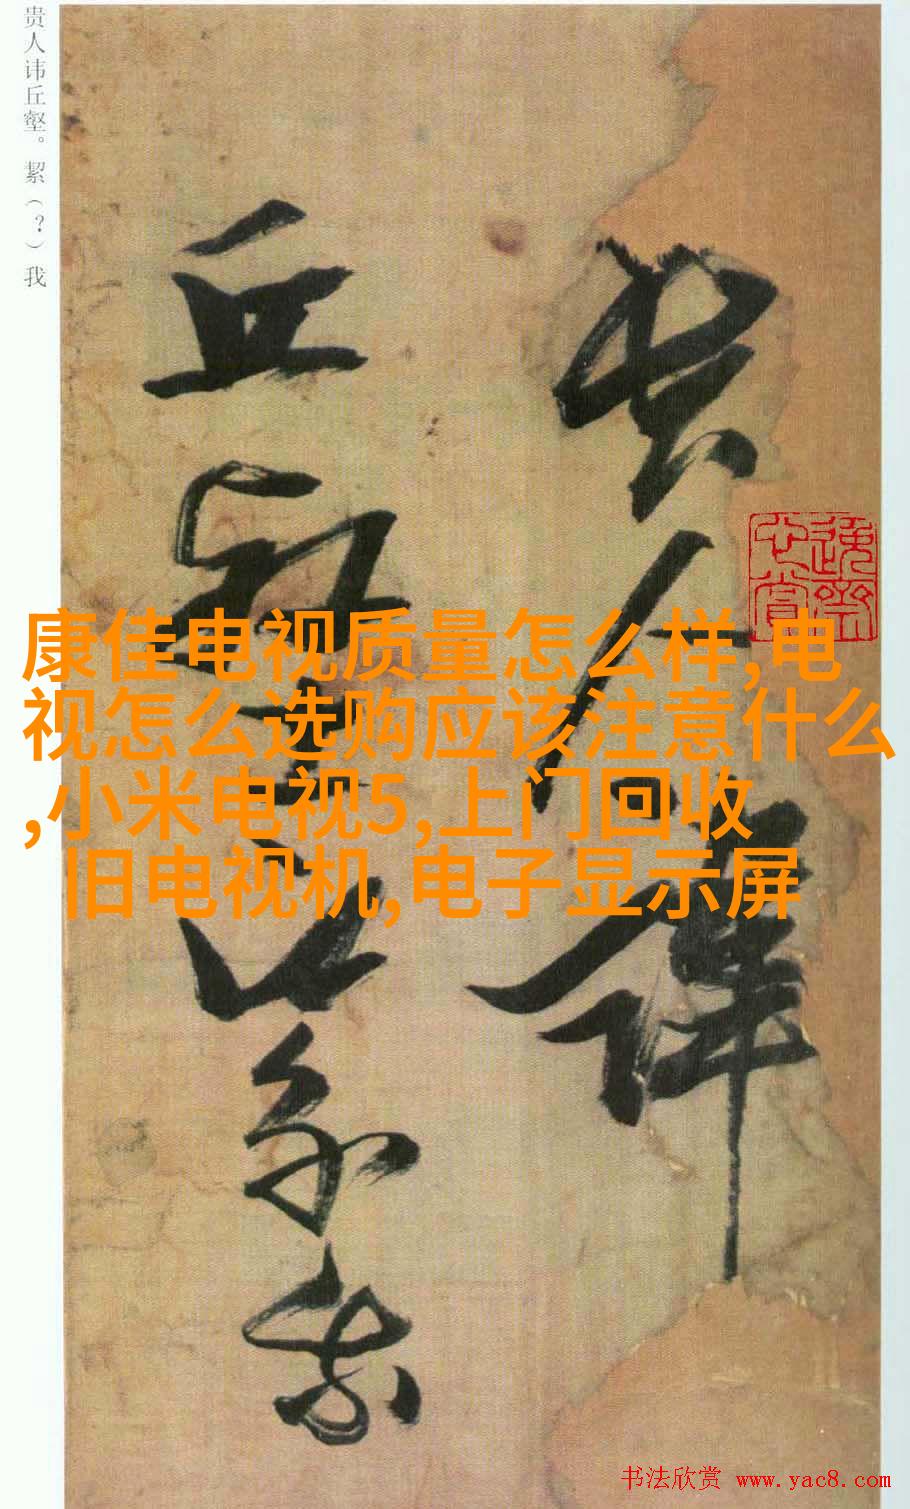 贵人讳丘壑。絜（？）我
贵人讳
丘壑
絜我
康佳电视质量怎么样,电
视怎么选购应该注意什么
,小米电视5,上门回收
旧电视机,电子显示屏
书法欣赏 www.yac8.com